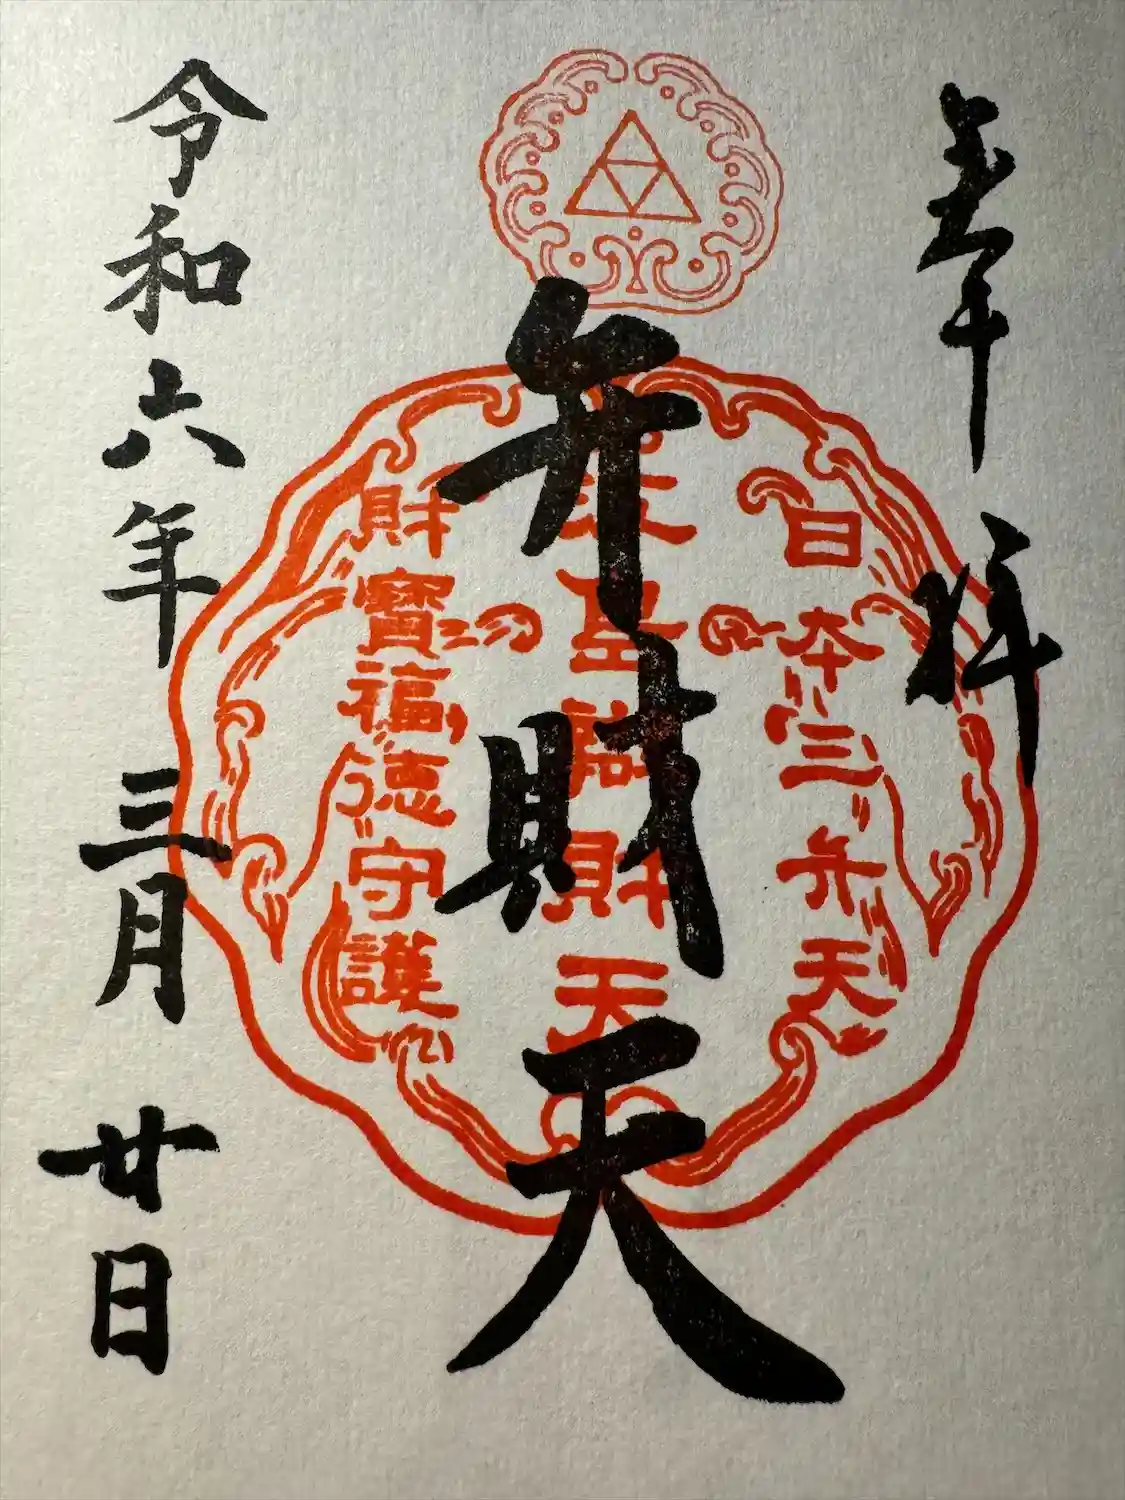 奉拝
日本三弁天
弁財天
聖財天
財寶福徳守護
令和六年三月廿日